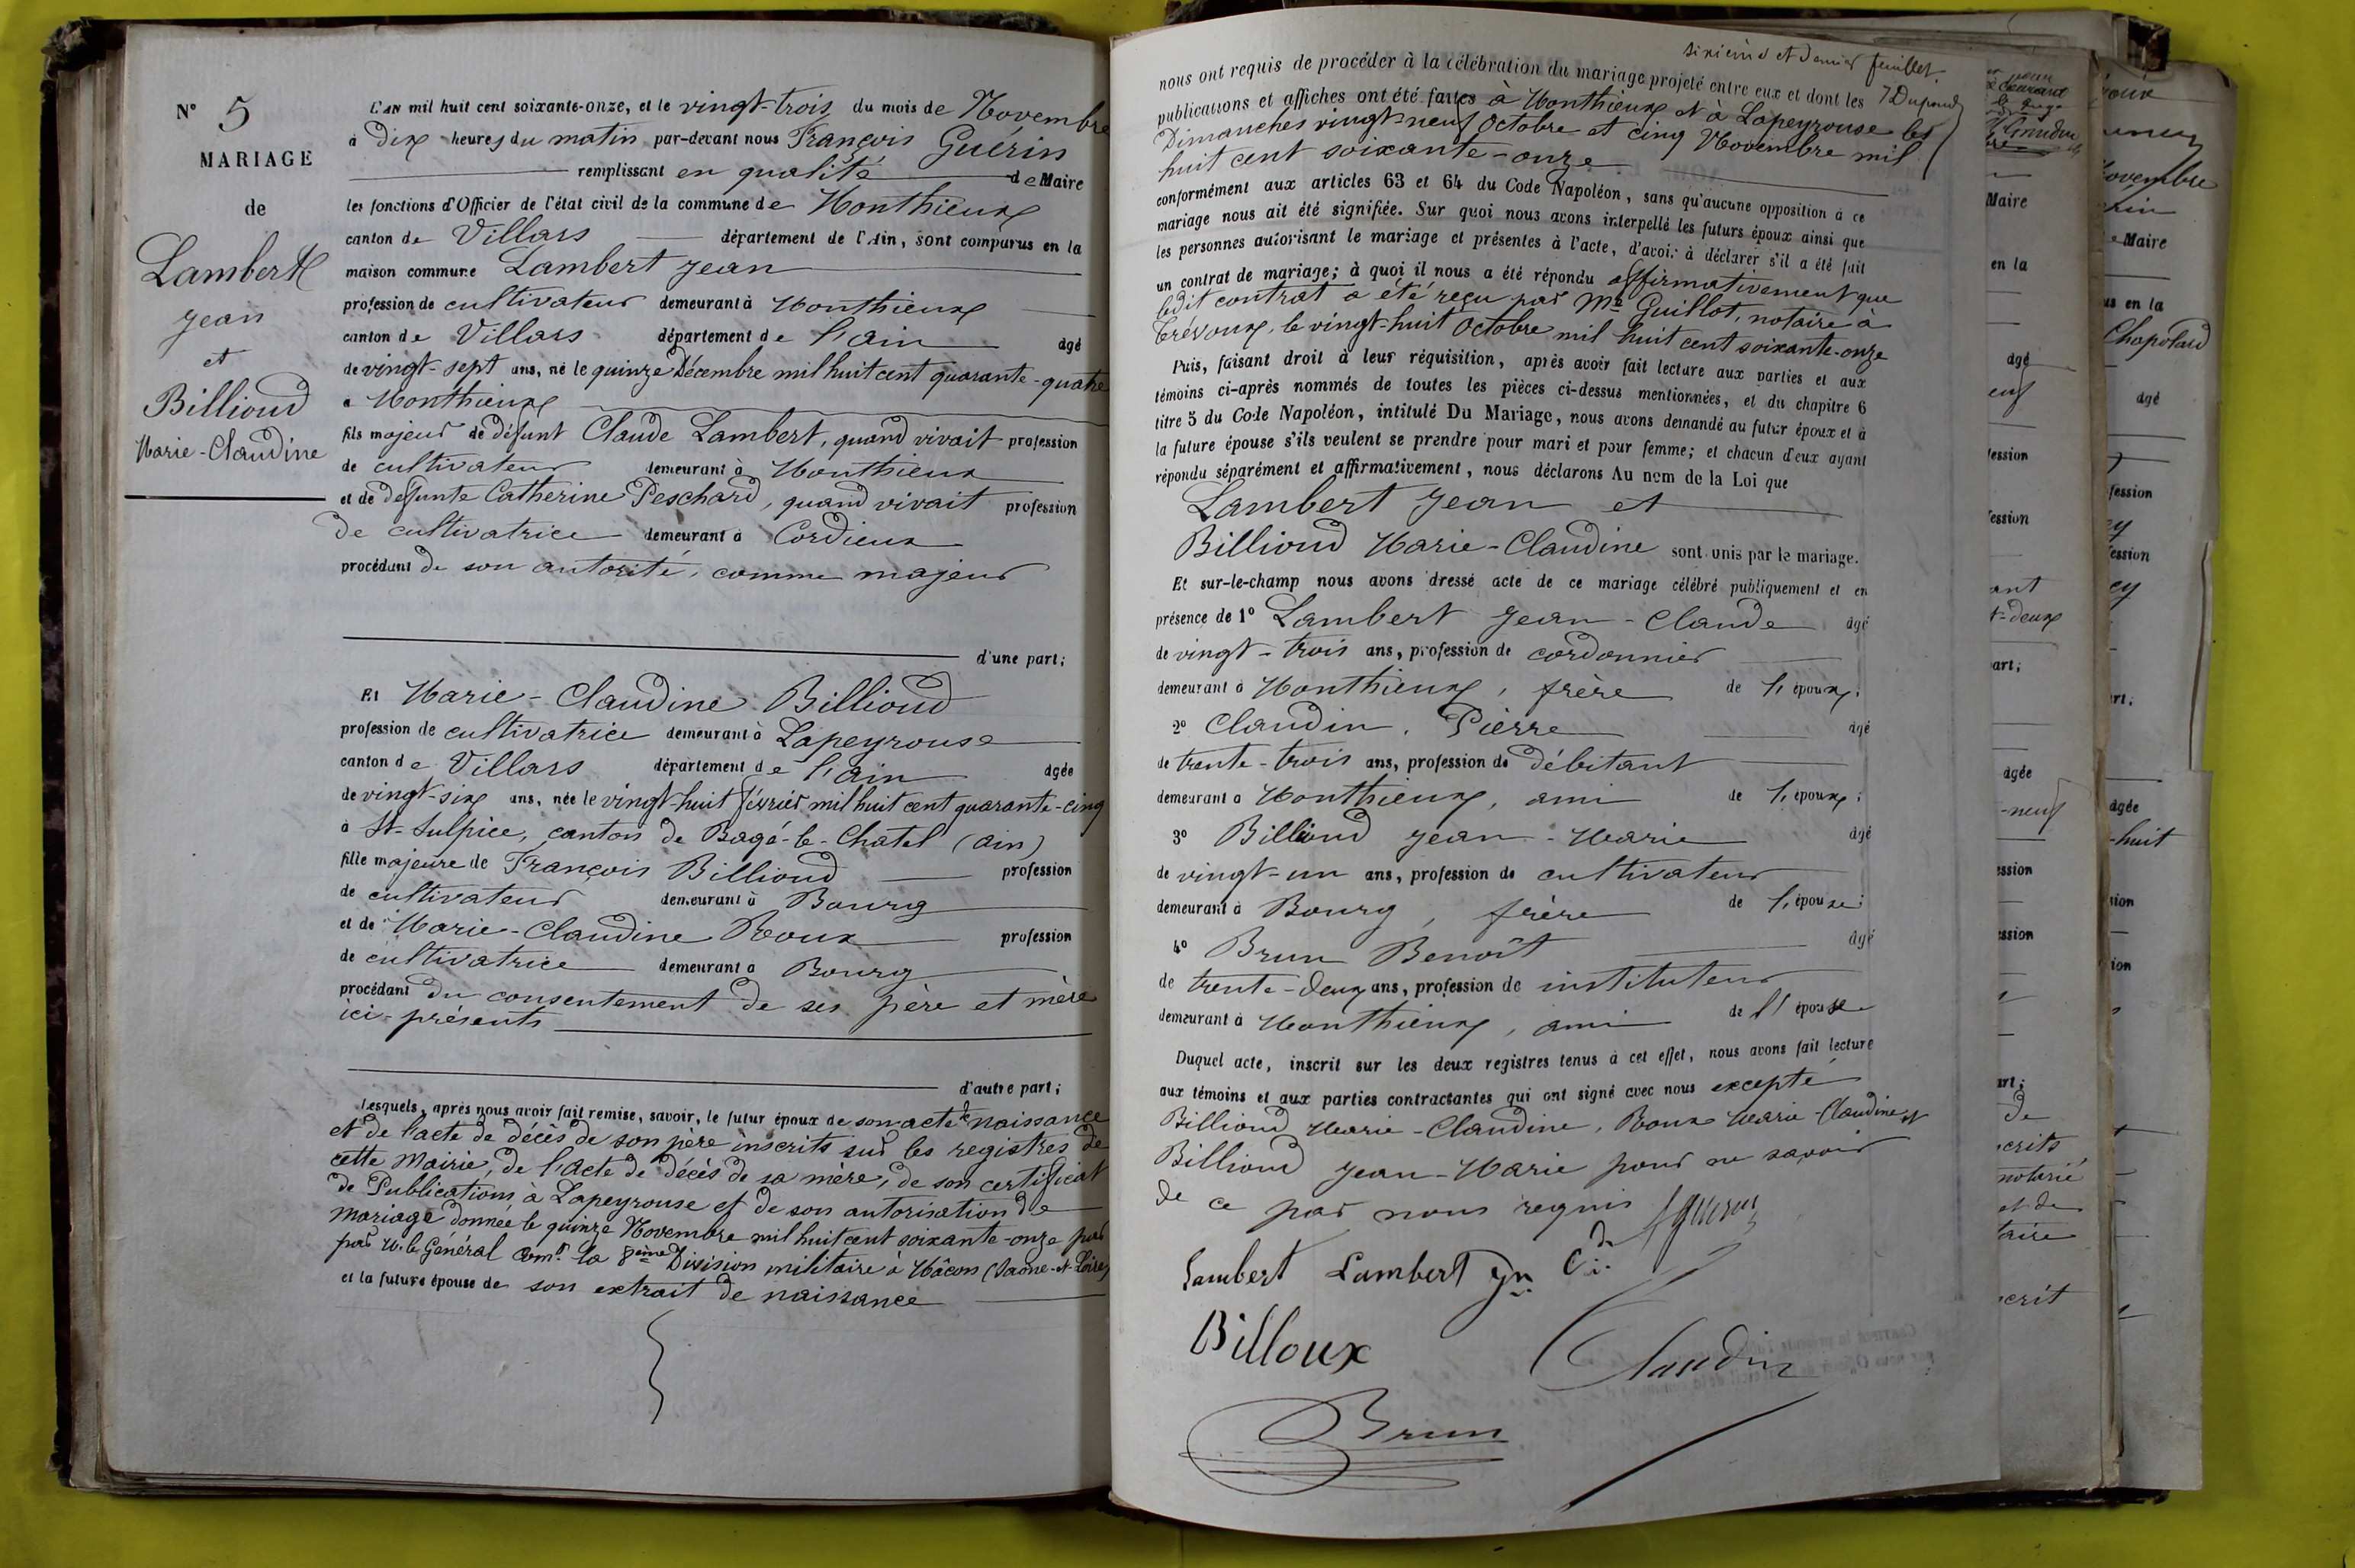 N° 5
MARIAGE
de
Lambert
Jean
et
Billioud
Marie-Claudine
L'AN mil huit cent soixante-onze, et le vingt-trois du mois de Novembre
à Dix heures du matin par-devant nous François Guérin
remplissant en qualité de Maire
les fonctions d'Officier de l'état civil de la commune de Monthieux
canton de Villars département de l'Ain, sont comparus en la
maison commune Lambert Jean
profession de cultivateur demeurant à Monthieux
canton de Villars département de l'Ain âgé
de vingt-sept ans, né le quinze Décembre mil huit cent quarante-quatre
à Monthieux
fils majeur de défunt Claude Lambert, quand vivait profession
de cultivateur demeurant à Monthieux
et de défunte Catherine Peschard, quand vivait profession
de cultivatrice demeurant à Cordieux
procédant de son autorité, comme majeur
d'une part;
Et Marie-Claudine Billioud
profession de cultivatrice demeurant à Lapeyrouse
canton de Villars département de l'Ain âgée
de vingt-six ans, née le vingt-huit février mil huit cent quarante-cinq
à St-Sulpice, canton de Bagé-le-Chatel (Ain)
fille majeure de François Billioud profession
de cultivateur demeurant à Bourg
et de Marie-Claudine Roux profession
de cultivatrice demeurant à Bourg
procédant du consentement de ses père et mère
ici-présents
d'autre part;
Lesquels, après nous avoir fait remise, savoir, le futur époux de son acte de naissance
et de l'acte de décès de son père inscrits sur les registres de
cette Mairie, de l'acte de décès de sa mère, de son certificat
de Publications à Lapeyrouse et de son autorisation de
mariage donnée le quinze Novembre mil huit cent soixante-onze par
par M. le Général Comt la 8ème Division militaire à Mâcon (Saône-et-Loire)
et la future épouse de son extrait de naissance
sixième et dernier feuillet
nous ont requis de procéder à la célébration du mariage projeté entre eux et dont les
publications et affiches ont été faites à Monthieux et à Lapeyrouse les
Dimanches vingt-neuf Octobre et cinq Novembre mil
huit cent soixante-onze
conformément aux articles 63 et 64 du Code Napoléon, sans qu'aucune opposition à ce
mariage nous ait été signifiée. Sur quoi nous avons interpellé les futurs époux ainsi que
les personnes autorisant le mariage et présentes à l'acte, d'avoir à déclarer s'il a été fait
un contrat de mariage; à quoi il nous a été répondu affirmativement que
ledit contrat a été reçu par Me Guillot, notaire à
Trévoux, le vingt-huit Octobre mil huit cent soixante-onze
Puis, faisant droit à leur réquisition, après avoir fait lecture aux parties et aux
témoins ci-après nommés de toutes les pièces ci-dessus mentionnées, et du chapitre 6
titre 5 du Code Napoléon, intitulé Du Mariage, nous avons demandé au futur époux et à
la future épouse s'ils veulent se prendre pour mari et pour femme; et chacun d'eux ayant
répondu séparément et affirmativement, nous déclarons Au nom de la Loi que
Lambert Jean et
Billioud Marie-Claudine sont unis par le mariage.
Et sur-le-champ nous avons dressé acte de ce mariage célébré publiquement et en
présence de 1° Lambert Jean-Claude âgé
de vingt-trois ans, profession de cordonnier
demeurant à Monthieux, frère de l'époux;
2° Claudin, Pierre âgé
de trente-trois ans, profession de débitant
demeurant à Monthieux, ami de l'époux;
3° Billioud Jean-Marie âgé
de vingt-un ans, profession de cultivateur
demeurant à Bourg, frère de l'épouse;
4° Brun Benoît âgé
de trente-deux ans, profession de instituteur
demeurant à Monthieux, ami de l'épouse
Duquel acte, inscrit sur les deux registres tenus à cet effet, nous avons fait lecture
aux témoins et aux parties contractantes qui ont signé avec nous excepté
Billioud Marie-Claudine, Roux Marie-Claudine et
Billioud Jean-Marie pour ne savoir
de ce par nous requis
Lambert Lambert Jn Cde
Billoux
Claudin
Brun
Maire
en la
âgé
âgée
Novembre
Maire
Chapolard
âgé
âgée
-huit